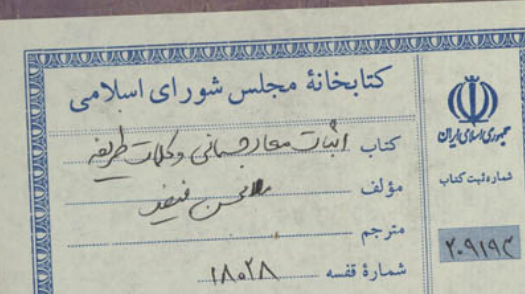 کتابخانهٔ مجلس شورای اسلامی
کتاب اثبات معاد جسمانی و کلمات طریفه
مؤلف ملا محسن فیض
مترجم
شمارهٔ قفسه ۱۸۰۲۸
جمهوری اسلامی ایران
شماره ثبت کتاب
۲۰۹۱۹۴